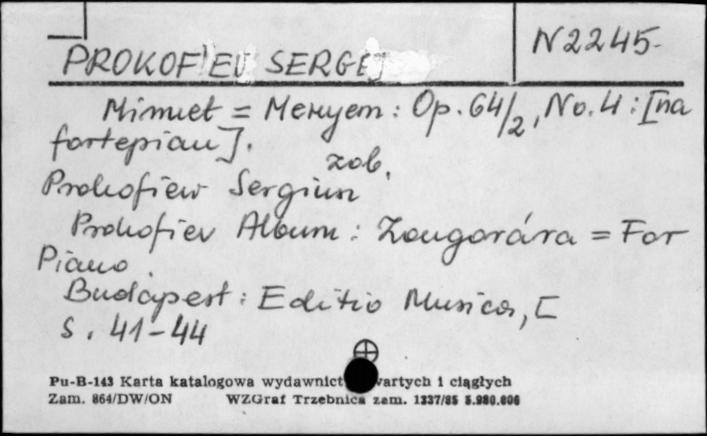 N2245
PROKOFIEV SERGEJ
Minuet = Менует : Op. 64/2, No. 4 : [na
fortepian].
zob.
Prokofiew Sergiusz
Prokofiev Album : Zongorára = For
Piano.
Budapest : Editio Musica, [
s. 41-44
Pu-B-143 Karta katalogowa wydawnict wartych i ciągłych
Zam. 864/DW/ON WZGraf Trzebnica zam. 1337/85 5.980.000